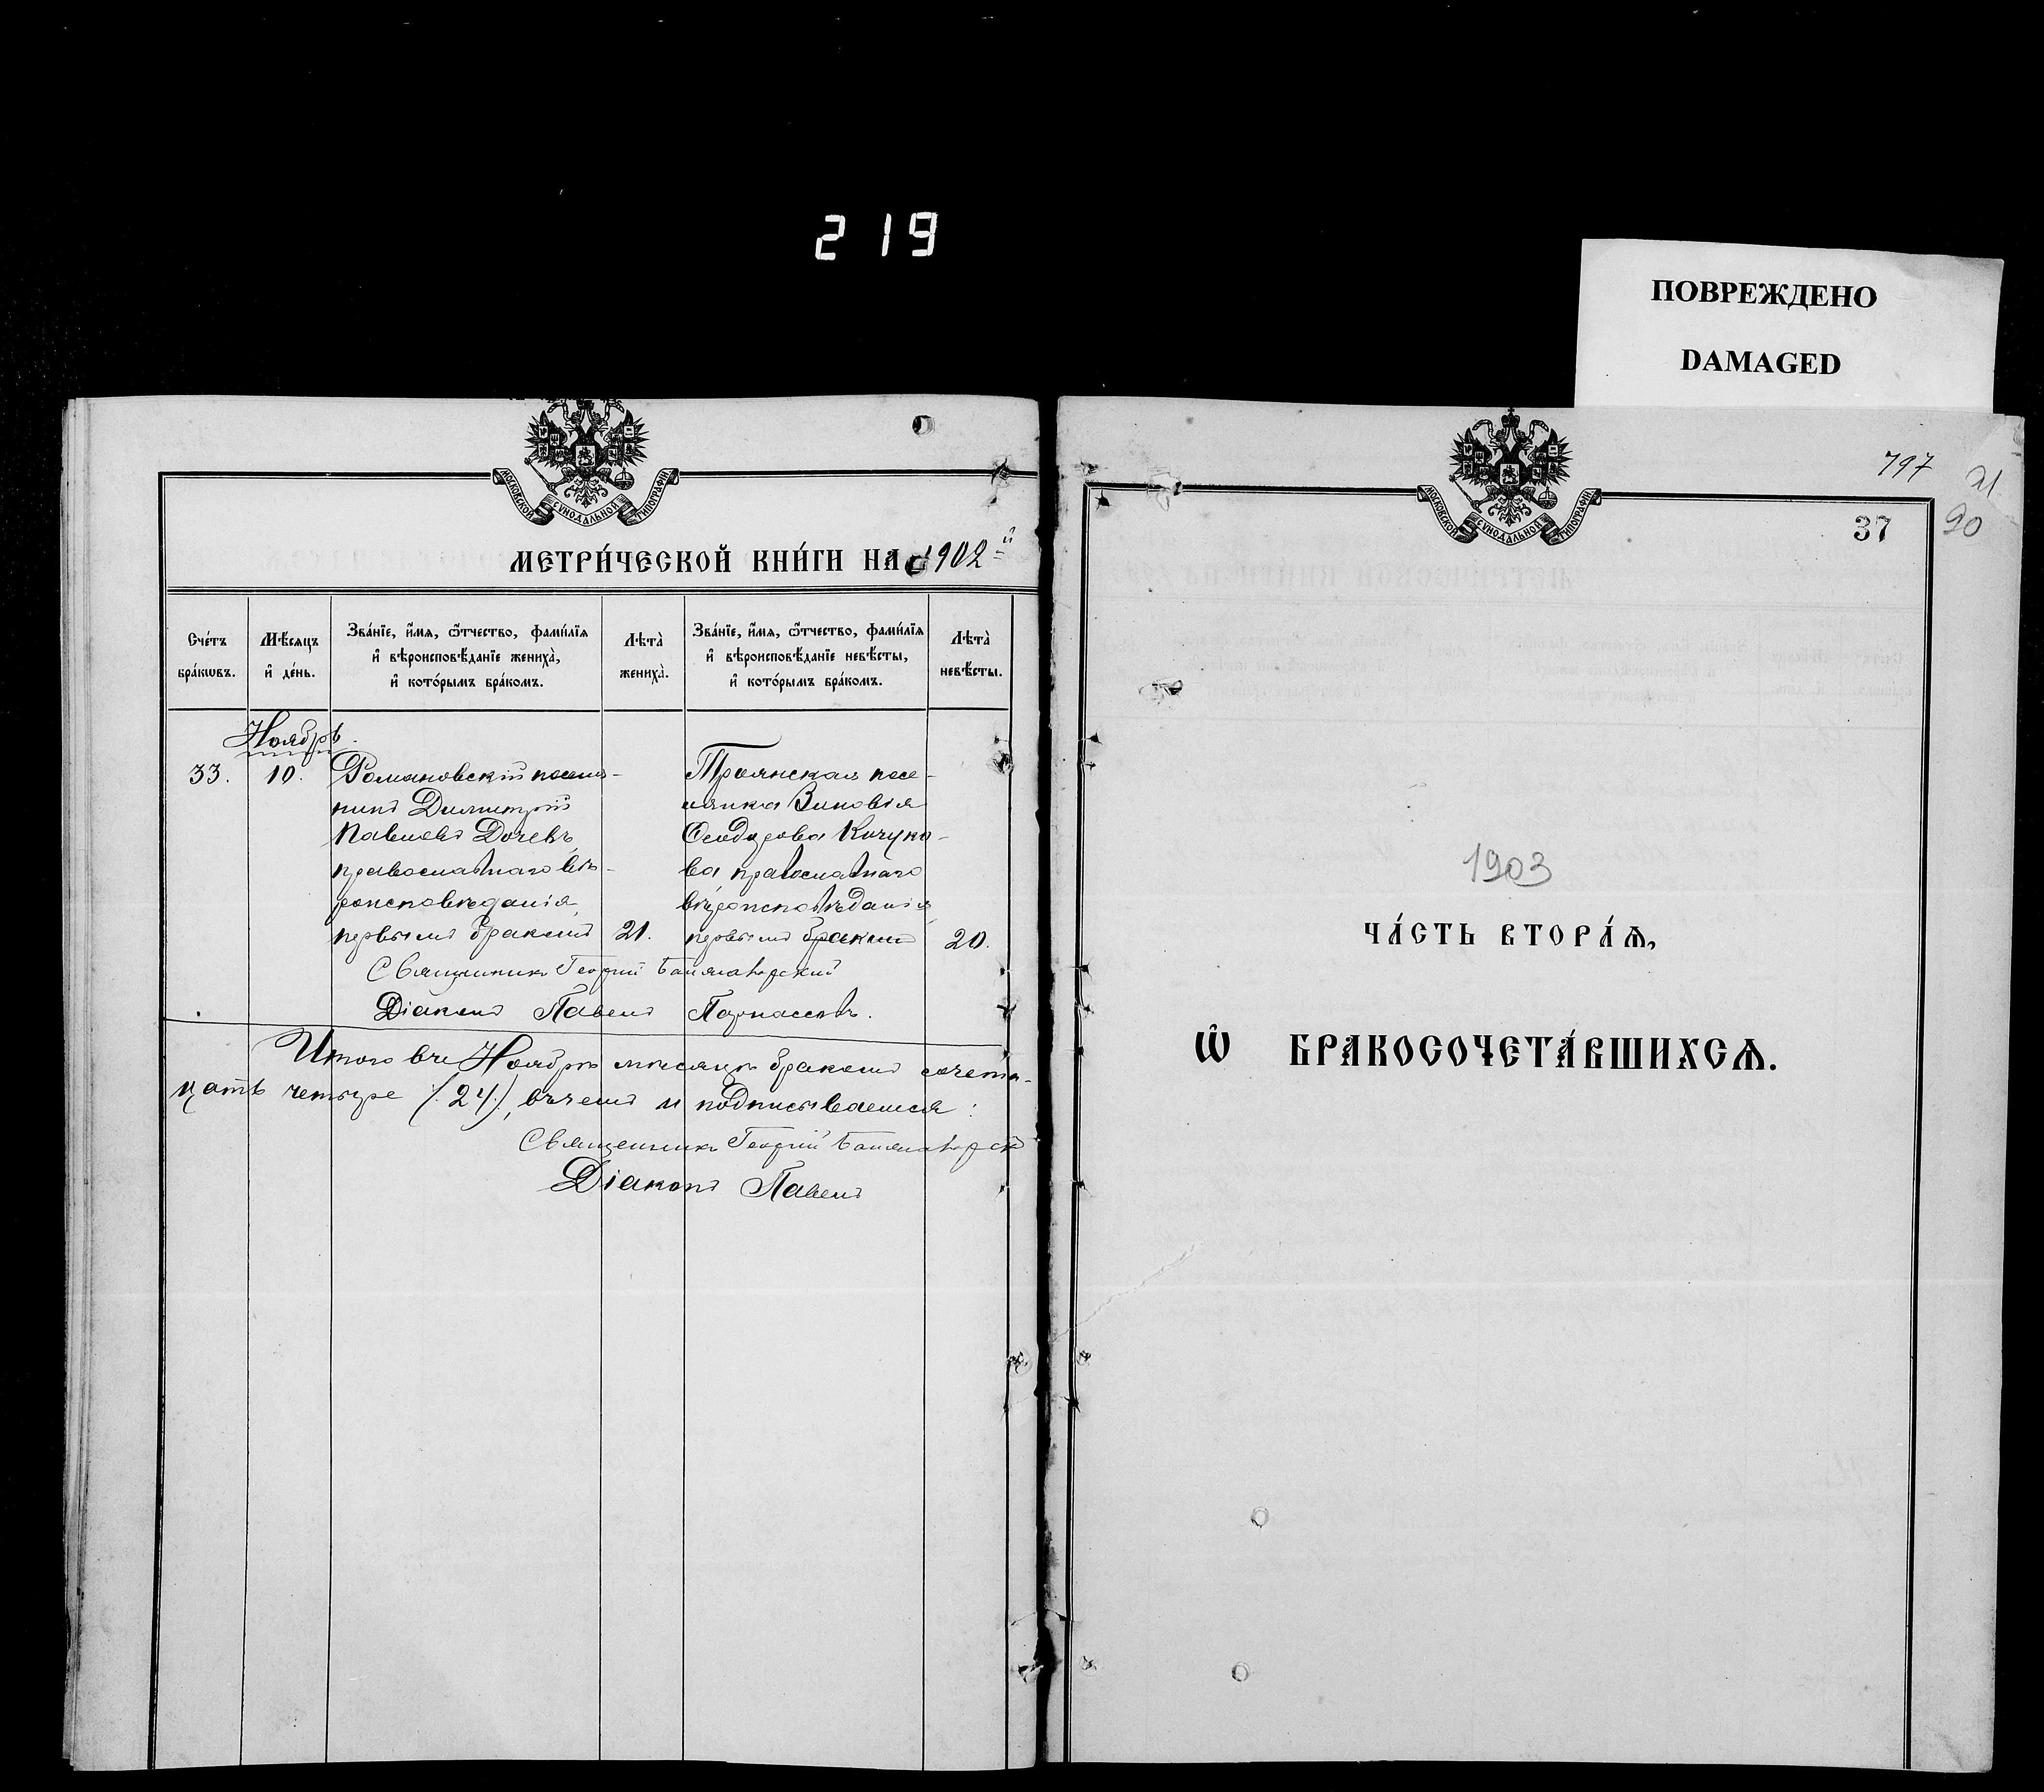 219
ПОВРЕЖДЕНО
DAMAGED
МОСКОВСКОЙ СѴНОДАЛЬНОЙ ТИПОГРАФІИ
МЕТРИ́ЧЕСКОЙ КНИ́ГИ НА 1902й
Сче́тъ бра́кѡвъ.
Мѣ́сяцъ и҆ де́нь.
Зва́нїе, и҆́мѧ, ѻ҆́тчество, фами́лїѧ и҆ вѣроисповѣ́данїе жениха̀, и҆ кото́рымъ бра́комъ.
Лѣта̀ жениха̀.
Зва́нїе, и҆́мѧ, ѻ҆́тчество, фами́лїѧ и҆ вѣроисповѣ́данїе невѣ́сты, и҆ кото́рымъ бра́комъ.
Лѣта̀ невѣ́сты.
Ноябрь.
33. 10.
Романовскій поселя-
нинъ Димитрій
Павловъ Дочевъ,
православнаго вѣ-
роисповѣданія,
первымъ бракомъ
21.
Троянская посе-
лянка Зиновія
Ѳеодорова Кочуко-
ва, православнаго
вѣроисповѣданія,
первымъ бракомъ
20.
Священникъ Георгій
Діаконъ Павелъ Парнассовъ.
Итого въ Ноябрѣ мѣсяцѣ бракомъ сочета-
четыре (24), въ чемъ и подписываемся:
Священникъ Георгій
Діаконъ Павелъ
МОСКОВСКОЙ СѴНОДАЛЬНОЙ ТИПОГРАФІИ
797
21
37
90
1903
ЧА́СТЬ ВТОРА́Ѧ,
Ѡ҆ БРАКОСОЧЕТА́ВШИХСѦ.